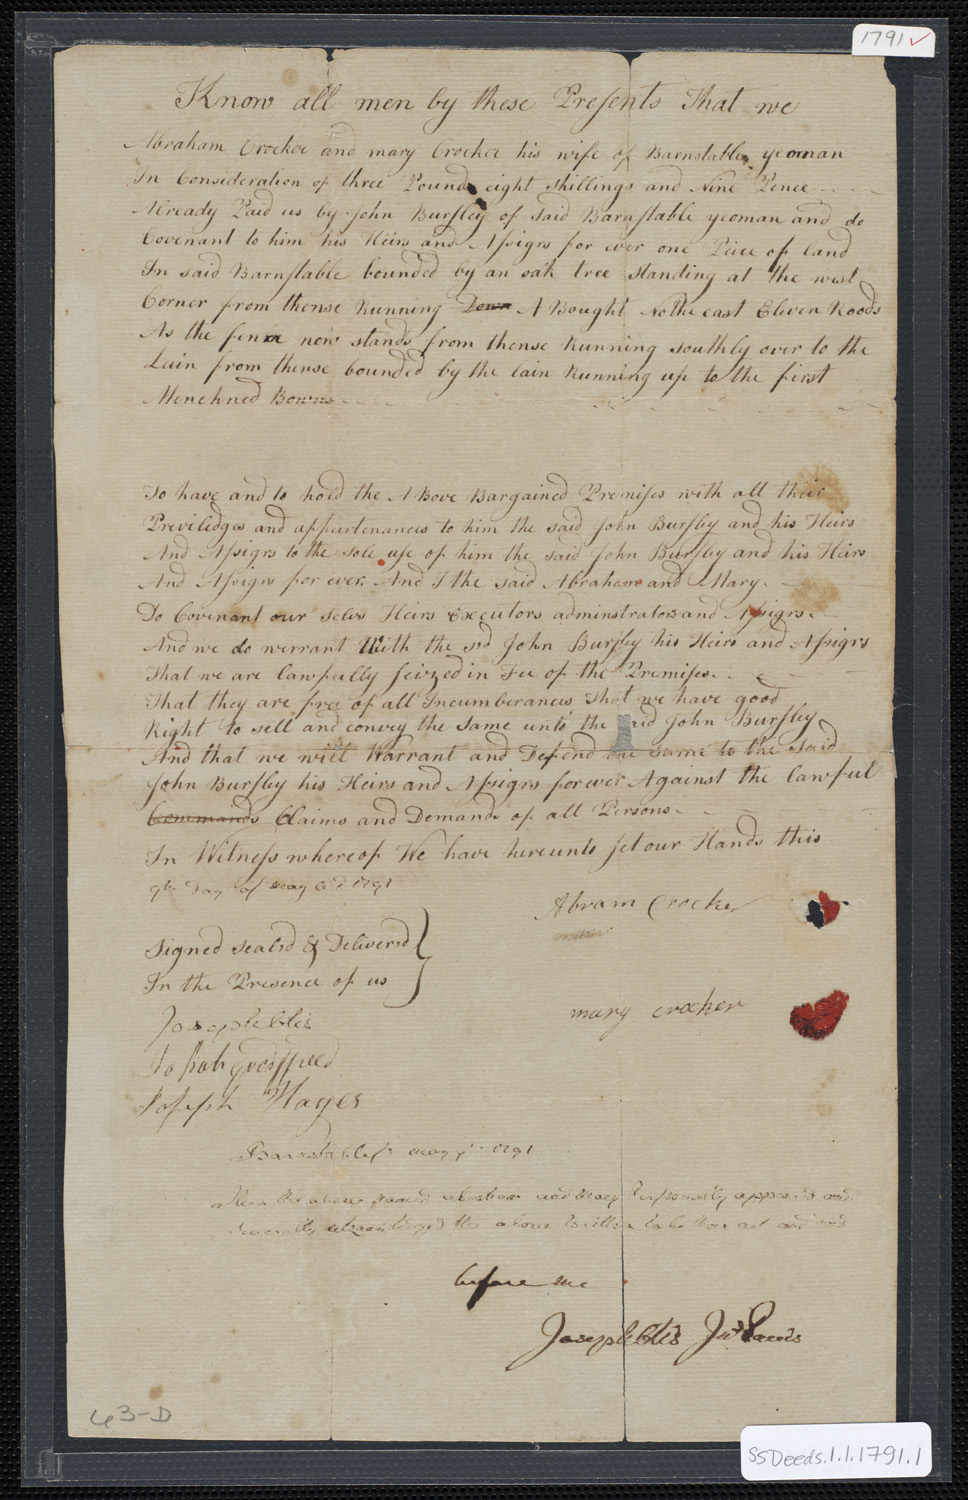 1791
Know all men by these Presents That we
Abraham Crocker and mary Crocker his wife of Barnstable yeoman
In Consideration of three Pounds eight shillings and Nine Pence
Already Paid us by John Bursley of said Barnstable yeoman and do
Covenant to him his Heirs and Assigns for ever one Peice of land
In said Barnstable bounded by an oak tree standing at the west
Corner from thense Running Down A Bought Nothe east Eleven Roods
As the fence now stands from thense Running southly over to the
Lain from thense bounded by the lain Running up to the first
Menchned Bowns
To have and to hold the A Bove Bargained Premises with all their
Previledges and appurtenances to him the said John Bursley and his Heirs
And Assigns to the sole use of him the said John Bursley and his Heirs
And Assigns for ever. And I the said Abraham and Mary
Do Covenant our selvs Heirs Executors adminstrators and Assigns
And we do werrant With the sd John Bursley his Heirs and Assigns
That we are lawfully seized in Fee of the Premises
That they are free of all Incumberances That we have good
Right to sell and convey the same unto the said John Bursley
And that we will Warrant and Defend the same to the said
John Bursley his Heirs and Assigns forever Against the lawful
Commands Claims and Demands of all Persons
In Witness whereof We have hereunto set our Hands this
9th Day of May AD 1791
Abram Crocker
Signed Seal'd & Deliverd
In the Presence of us
mary crocker
Joseph Blis
Joseph Hayes
Barnstable ss may 1791
Then the above named Abraham and Mary Personally appeared and
severally acknowledged the above written to be their act and deed
before me
Joseph Blis Jus Pacis
43-D
SSDeeds.1.1.1791.1